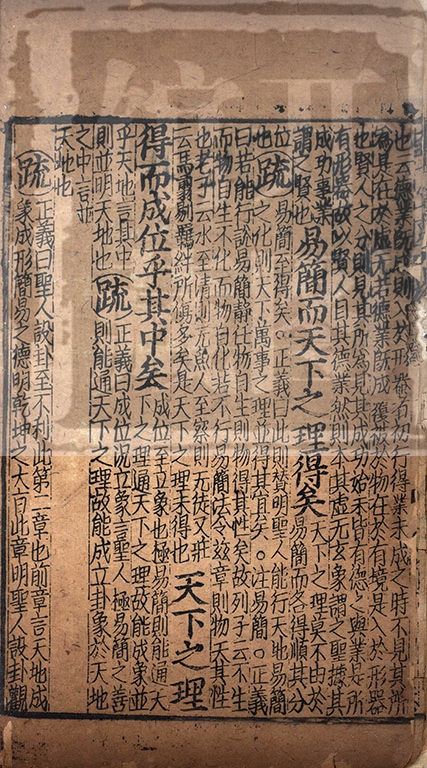 也云德業既成則入於形器者初行德業未成之時不見其所
為是在於虛无若德業既成覆被於物在於有境是入於形器
也賢人之分則見其所為見其成功始末皆有德之與業是所
有形器故以賢人目其德業然則本其虛无玄象謂之聖據其
成功事業
謂之賢也
易簡而天下之理得矣
天下之理莫不由於
易簡而各得順其分
位
也
疏
易簡至得矣○正義曰此則贊明聖人能行天地易簡
之化則天下萬事之理並得其宜矣○注易簡○正義
曰若能行說易簡靜任物自生則物得其性矣故列子云不生
而物自生不化而物自化若不行易簡法令茲章則物失其性
也老子云水至清則无魚人至察則无徒又莊
云馬翦剔羈絆所傷多矣是天下之理未得也
天下之理
得而成位乎其中矣
成位至立象也極易簡則能通天
下之理通天下之理故能成象並
乎天地言其中
則並明天地也
疏
正義曰成位況立象言聖人極易簡之善
則能通天下之理故能成立卦象於天地
之中言並
天地也
疏
正義曰聖人設卦至不利此第二章也前章言天地成
象成形簡易之德明乾坤之大旨此章明聖人設卦觀